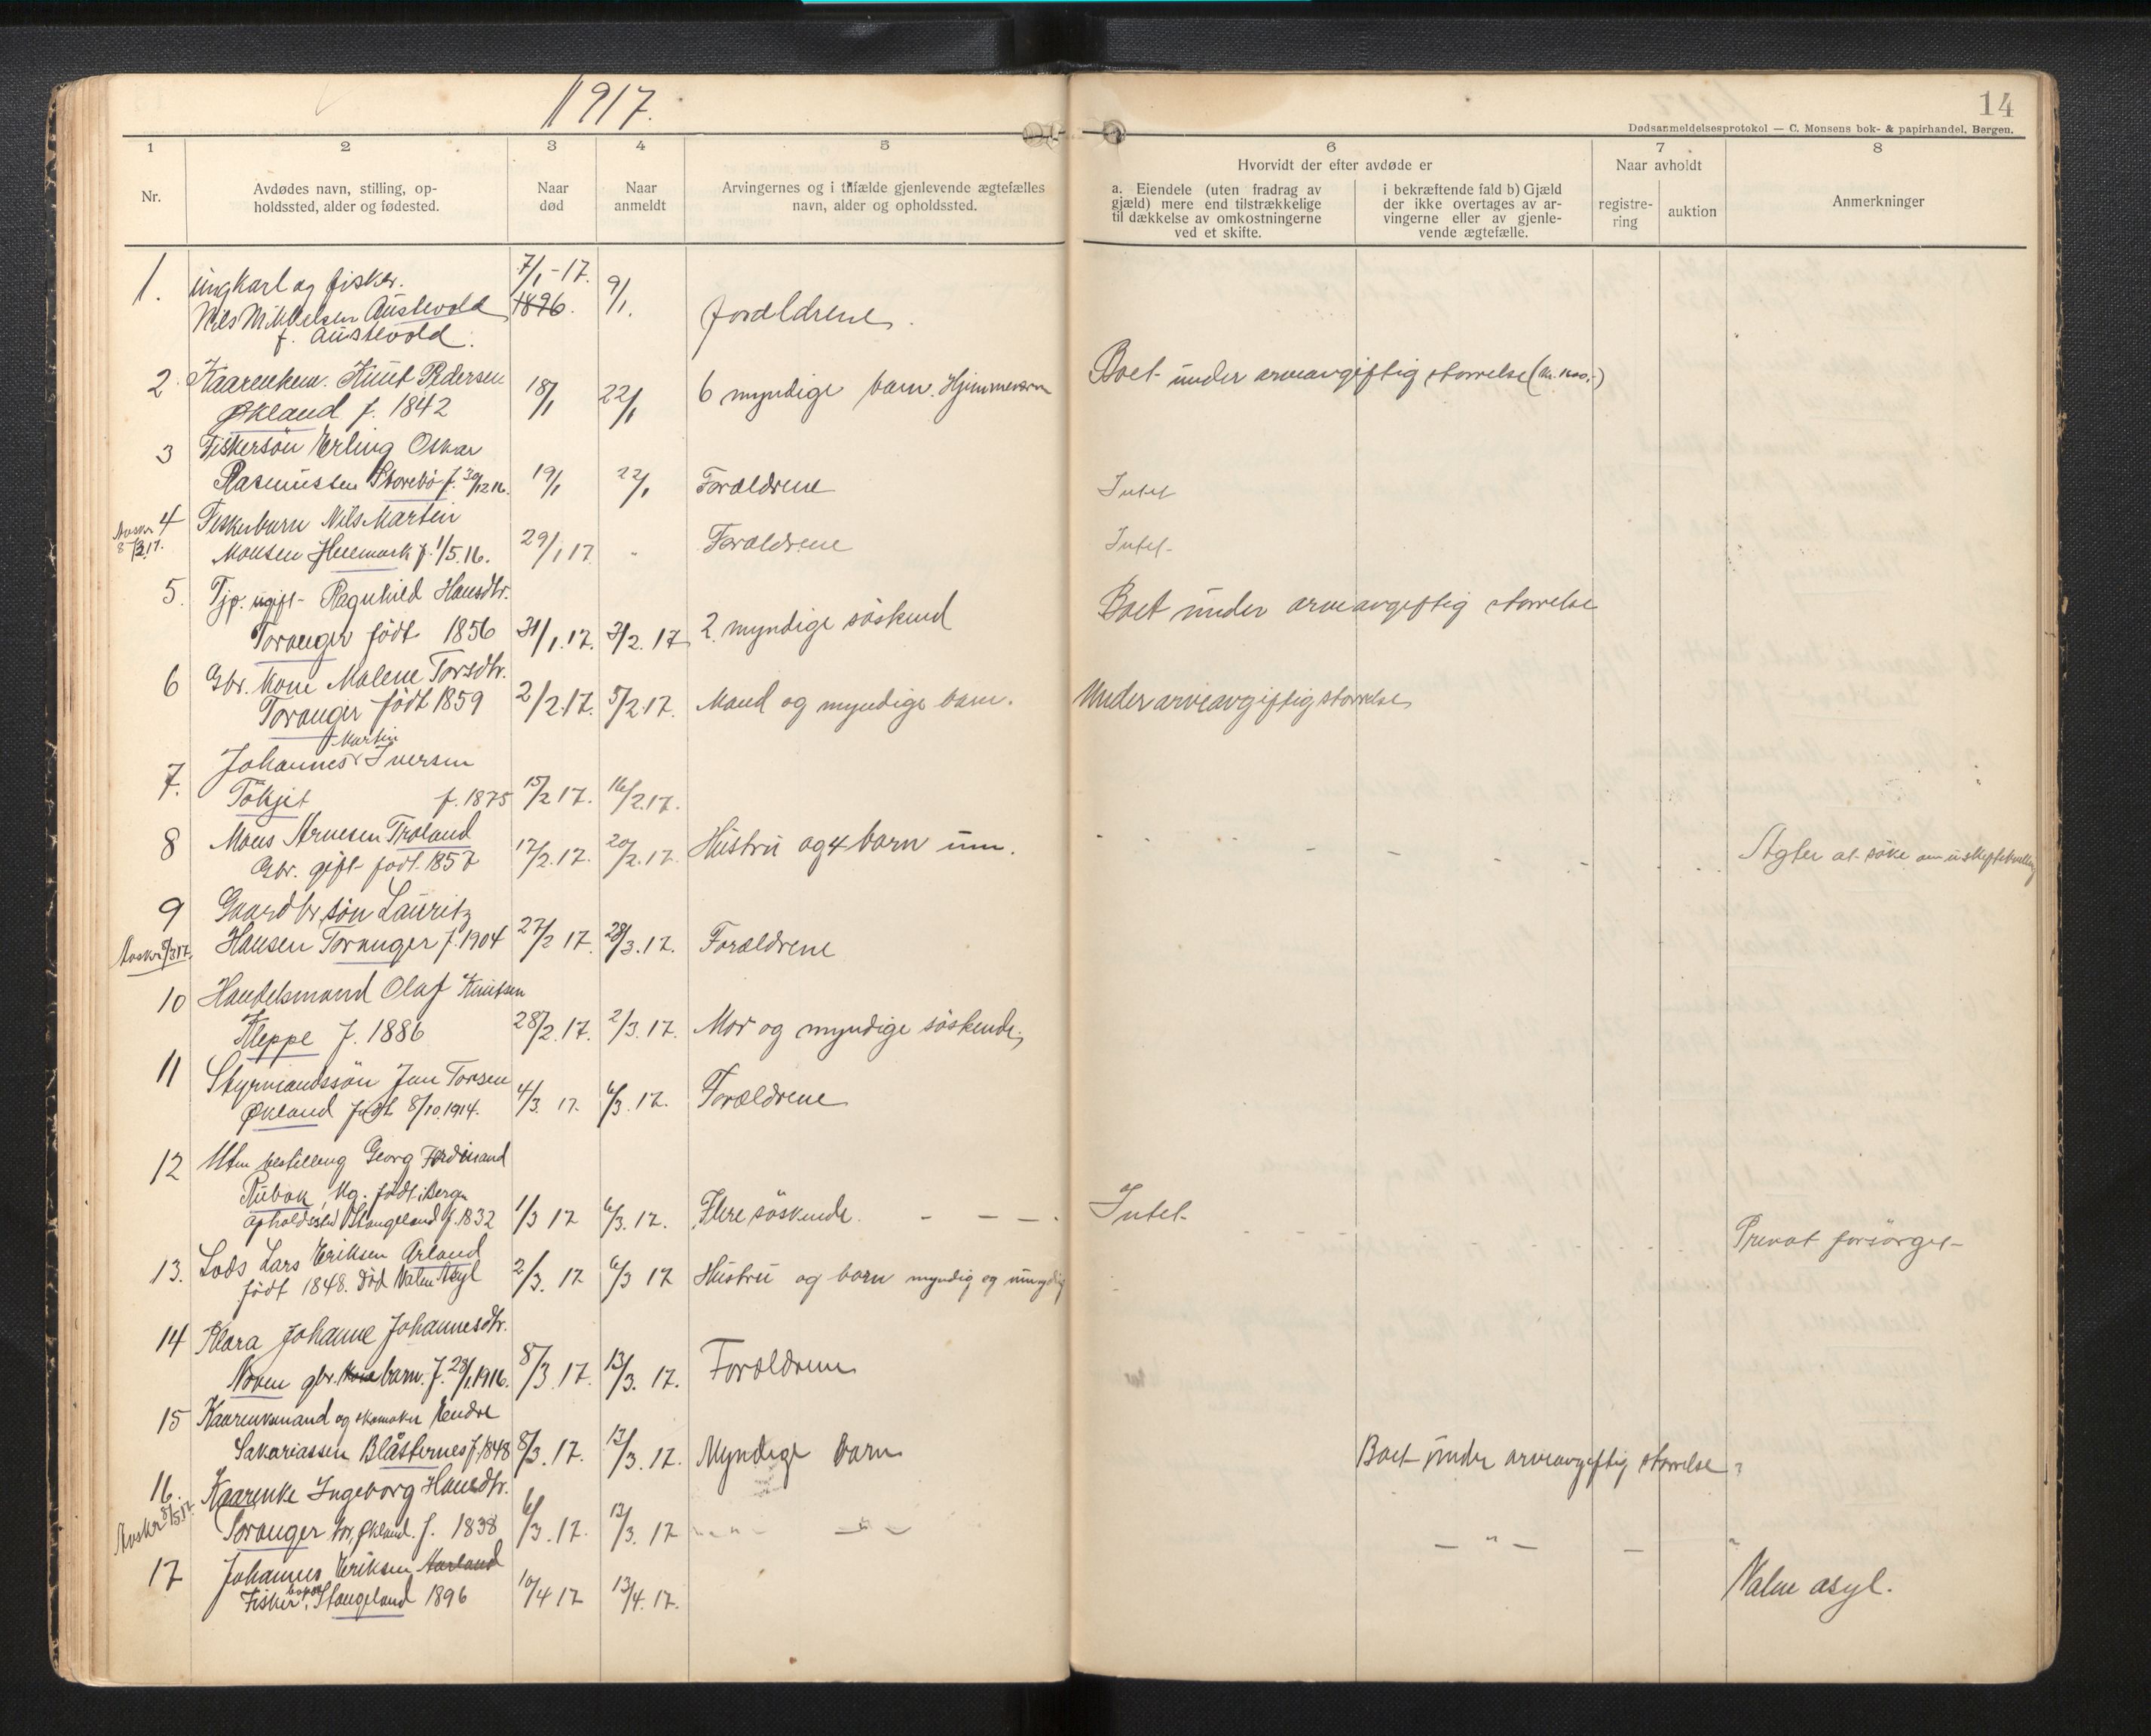 1917.
14
Dødsanmeldelsesprotokol — C. Monsens bok- & papirhandel, Bergen.
1 2 3 4 5 6 7 8
Nr.
Avdødes navn, stilling, op-
holdssted, alder og fødested.
Naar
død
Naar
anmeldt
Arvingernes og i tilfælde gjenlevende ægtefælles
navn, alder og opholdssted.
Hvorvidt der efter avdøde er
a. Eiendele (uten fradrag av
gjæld) mere end tilstrækkelige
til dækkelse av omkostningerne
ved et skifte.
i bekræftende fald b) Gjæld
der ikke overtages av ar-
vingerne eller av gjenle-
vende ægtefælle.
Naar avholdt
registre-
ring
auktion
Anmerkninger
1. ungkarl og fisker. 7/1-17. 9/1.
Nils Mikkelsen Austevold 1896. forældrene.
f. Austevold.
2. Kaarenkm. Knut Pedersen 18/1 22/1 6 myndige barn. Boet under arveavgiftig størrelse
Økland f. 1842
3 Fiskersøn Erling Oskar
Rasmussen Storebö f. 30/12 16. 19/1 22/1 Forældrene Intet
4 Fiskerbarn Nils Martin
Monsen f. 1/5.16. 29/1 17 " Forældrene Intet
5. Tjp. ugift Ragnhild Hansdtr.
Toranger födt 1856 31/1.17. 3/2.17 2 myndige söskend Boet under arveavgiftig størrelse
6 Gbr. kone Malene Torsdtr.
Toranger födt 1859 2/2.17. 5/2.17. Mand og myndige barn. Under arveavgiftig størrelse
Martin
7. Johannes Iversen
f. 1875 15/2 17. 16/2.17.
8 Mons Arnesen Troland
Gbr. gift födt 1857 17/2.17. 20/2.17. Hustru og 4 barn um. Agter at søke om uskiftebevilling
9 Gaardbr.søn Lauritz
Avskr. Hansen Toranger f. 1904 27/2 17. 28/3.17. Forældrene
10 Handelsmand Olaf Knutsen
Kleppe f. 1886 28/2.17. 2/3.17. Mor og myndige söskende
11 Styrmandssön Jan Torsen
Økland födt 8/10.1914. 4/3. 17. 6/3.17. Forældrene
12 Uten bestilling Georg Ferdinand
födt i Bergen
opholdssted Stangeland f. 1832 1/3 17 6/3.17. Flere söskende. Intet. Privat forsörget
13. Lods Lars Eriksen Årland
födt 1848. Död Valen Asyl 2/3. 17 6/3 17 Hustru og barn myndig og umyndig
14 Klara Johanne Johannesdtr.
gbr. barn. f. 28/1.1916. 8/3.17. 13/3.17. Forældrene
15 Kaarenkmand og skomaker Endre
Sakariassen Blåsternes f. 1848 8/3.17. 13/3.17. Myndige barn Boet under arveavgiftig størrelse
16. Kaarenke Ingeborg Hansdtr.
Avskr 8/5 17. Toranger Økland. f. 1838 6/3.17. 13/3.17 — " — — " —
17 Johannes Eriksen Aarland
Fisker, Stangeland 1896 10/4 17 13/4.17. Valen asyl.